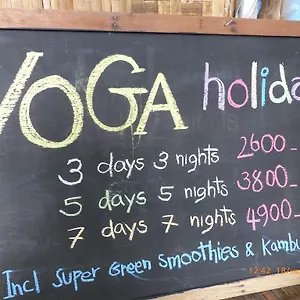 YOGA holida
3 days 3 nights 2600-
5 days 5 nights 3800-
7 days 7 nights 4900-
Incl Super Green Smoothies & Kambu